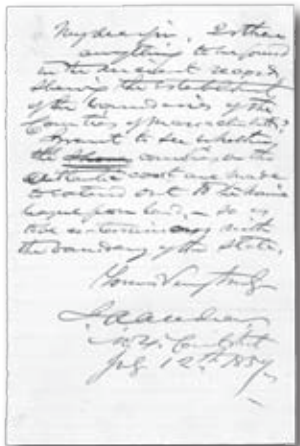 My dear sir, Is there
anything to be found
in the ancient records
showing the establisht
of the boundaries of the
Counties of Massachusetts?
I want to see whether
the counties on the
Atlantic coast are made
to extend out to the marine
league from land, – so as
to be co-terminous with
the boundary of the State.
Yours Very truly
July 12th 1857